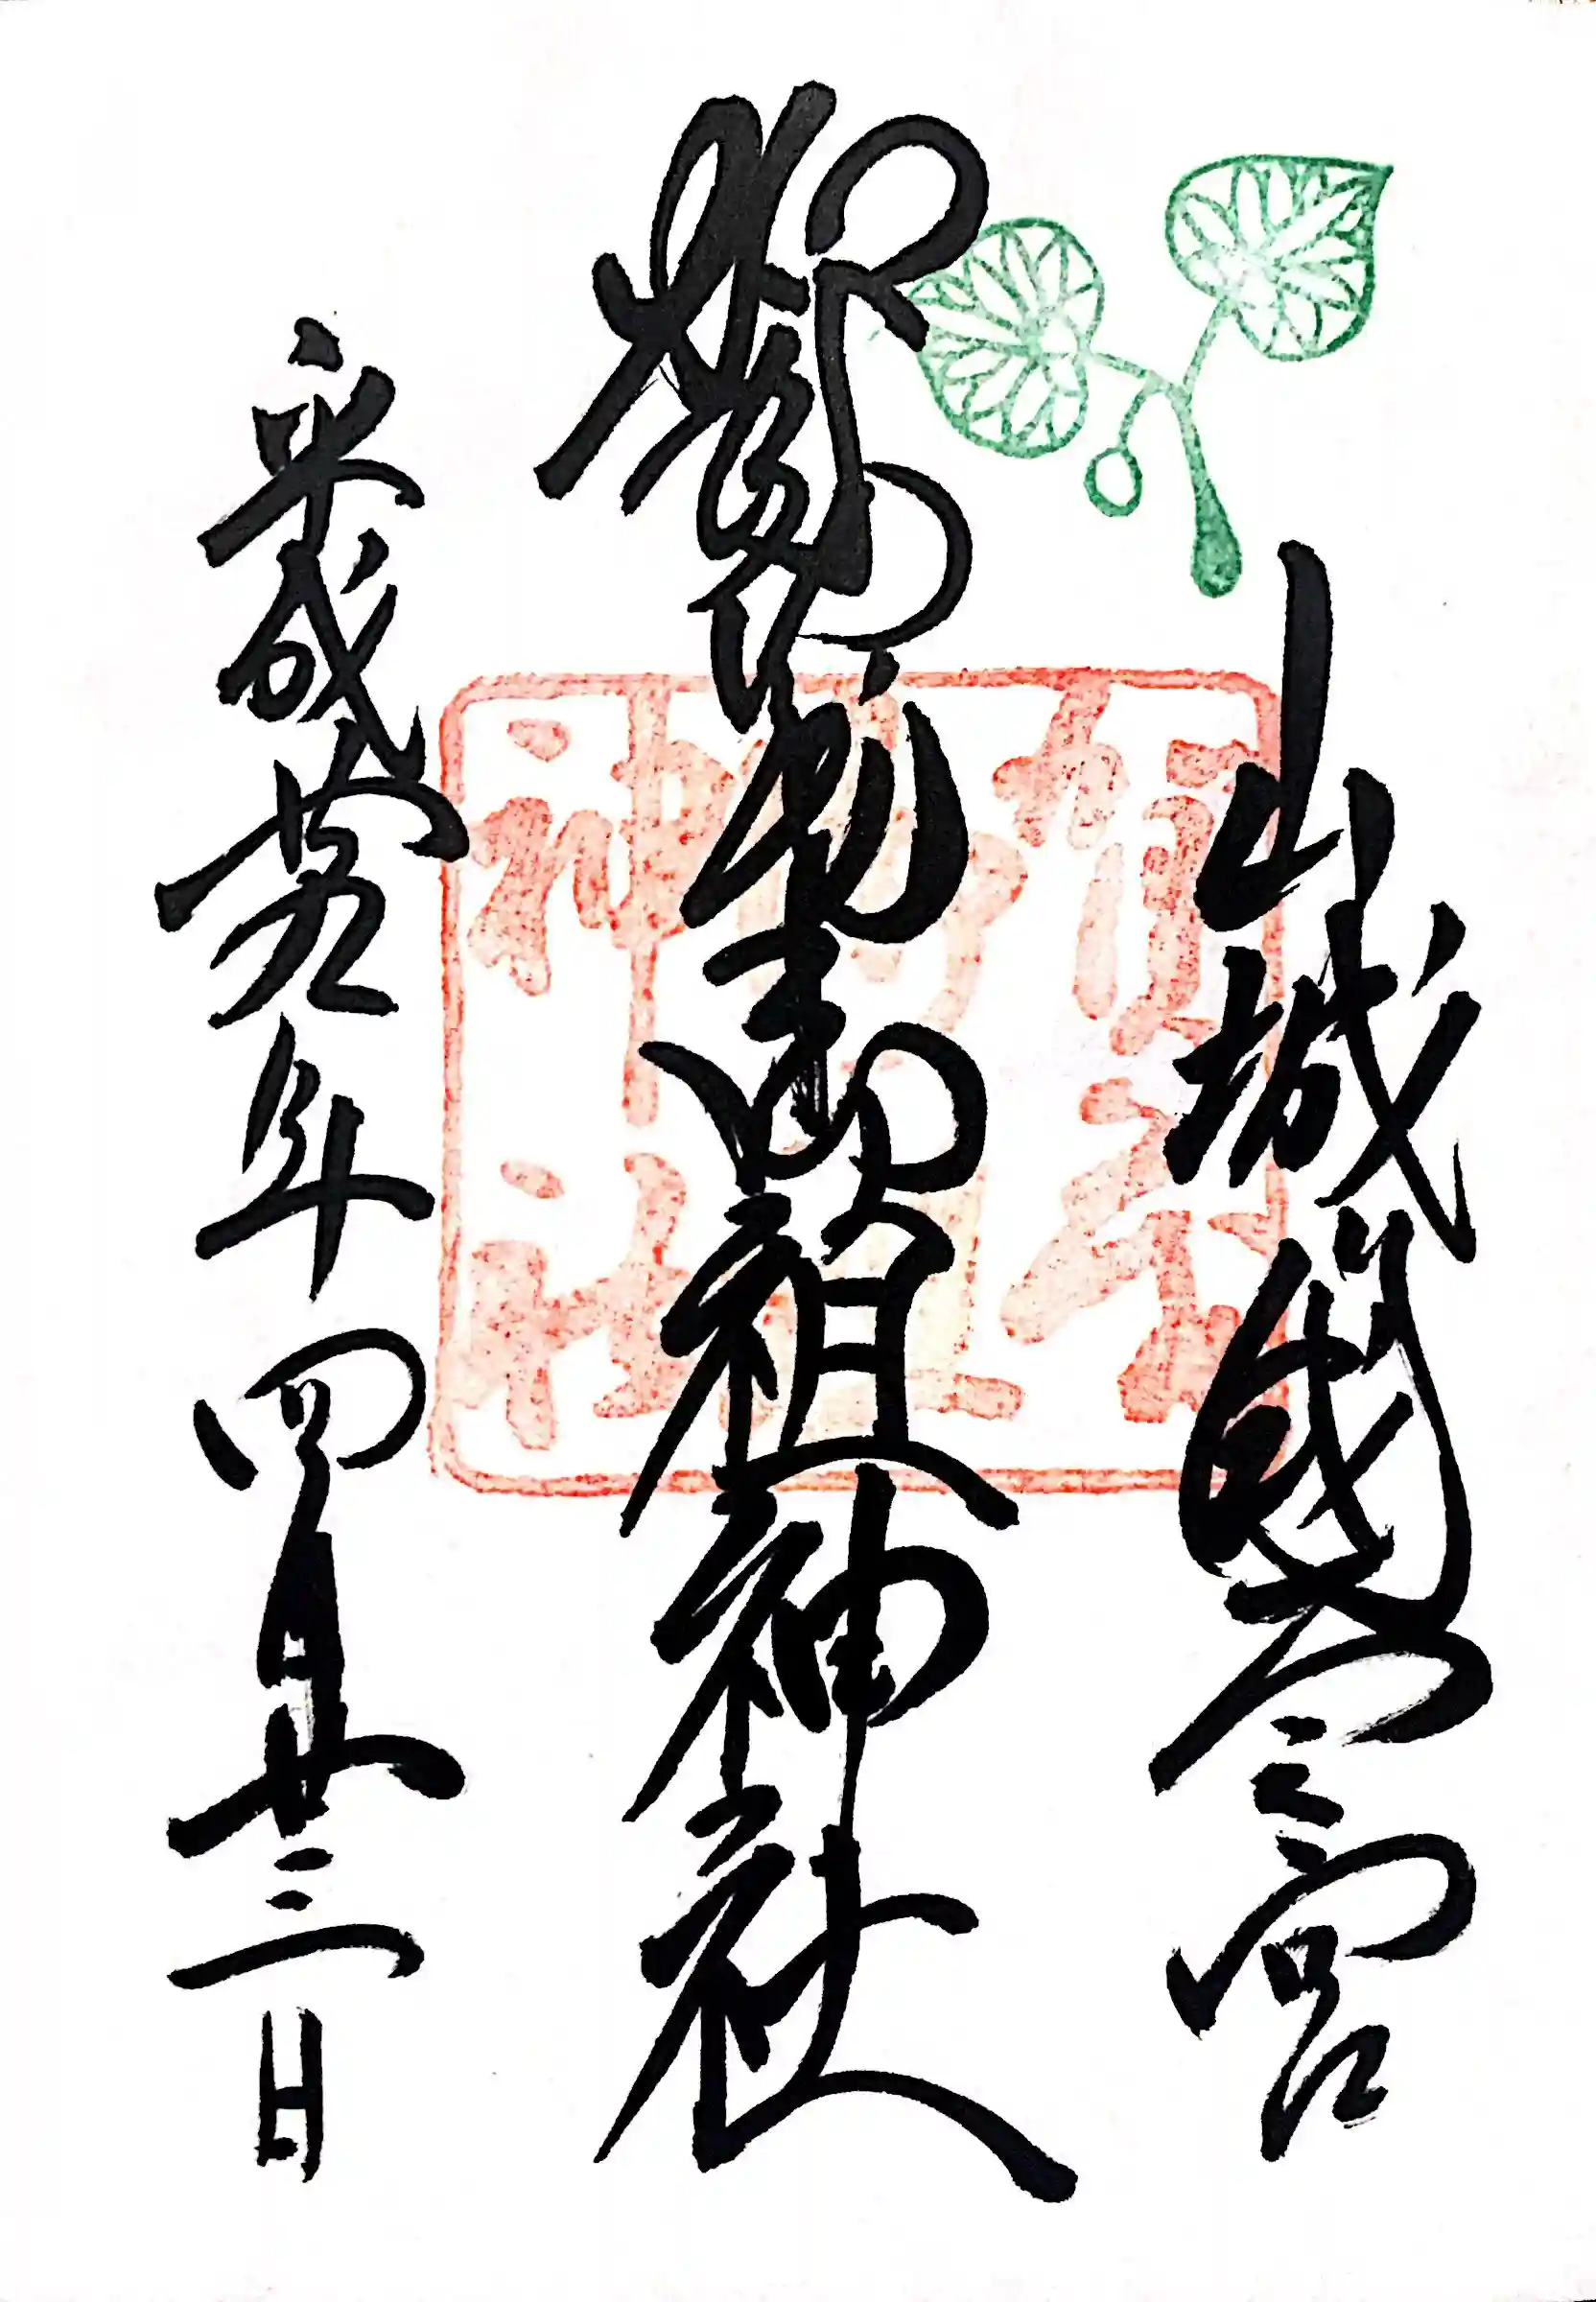 山城國一之宮
賀茂御祖神社
平成廿九年四月廿三日
神社